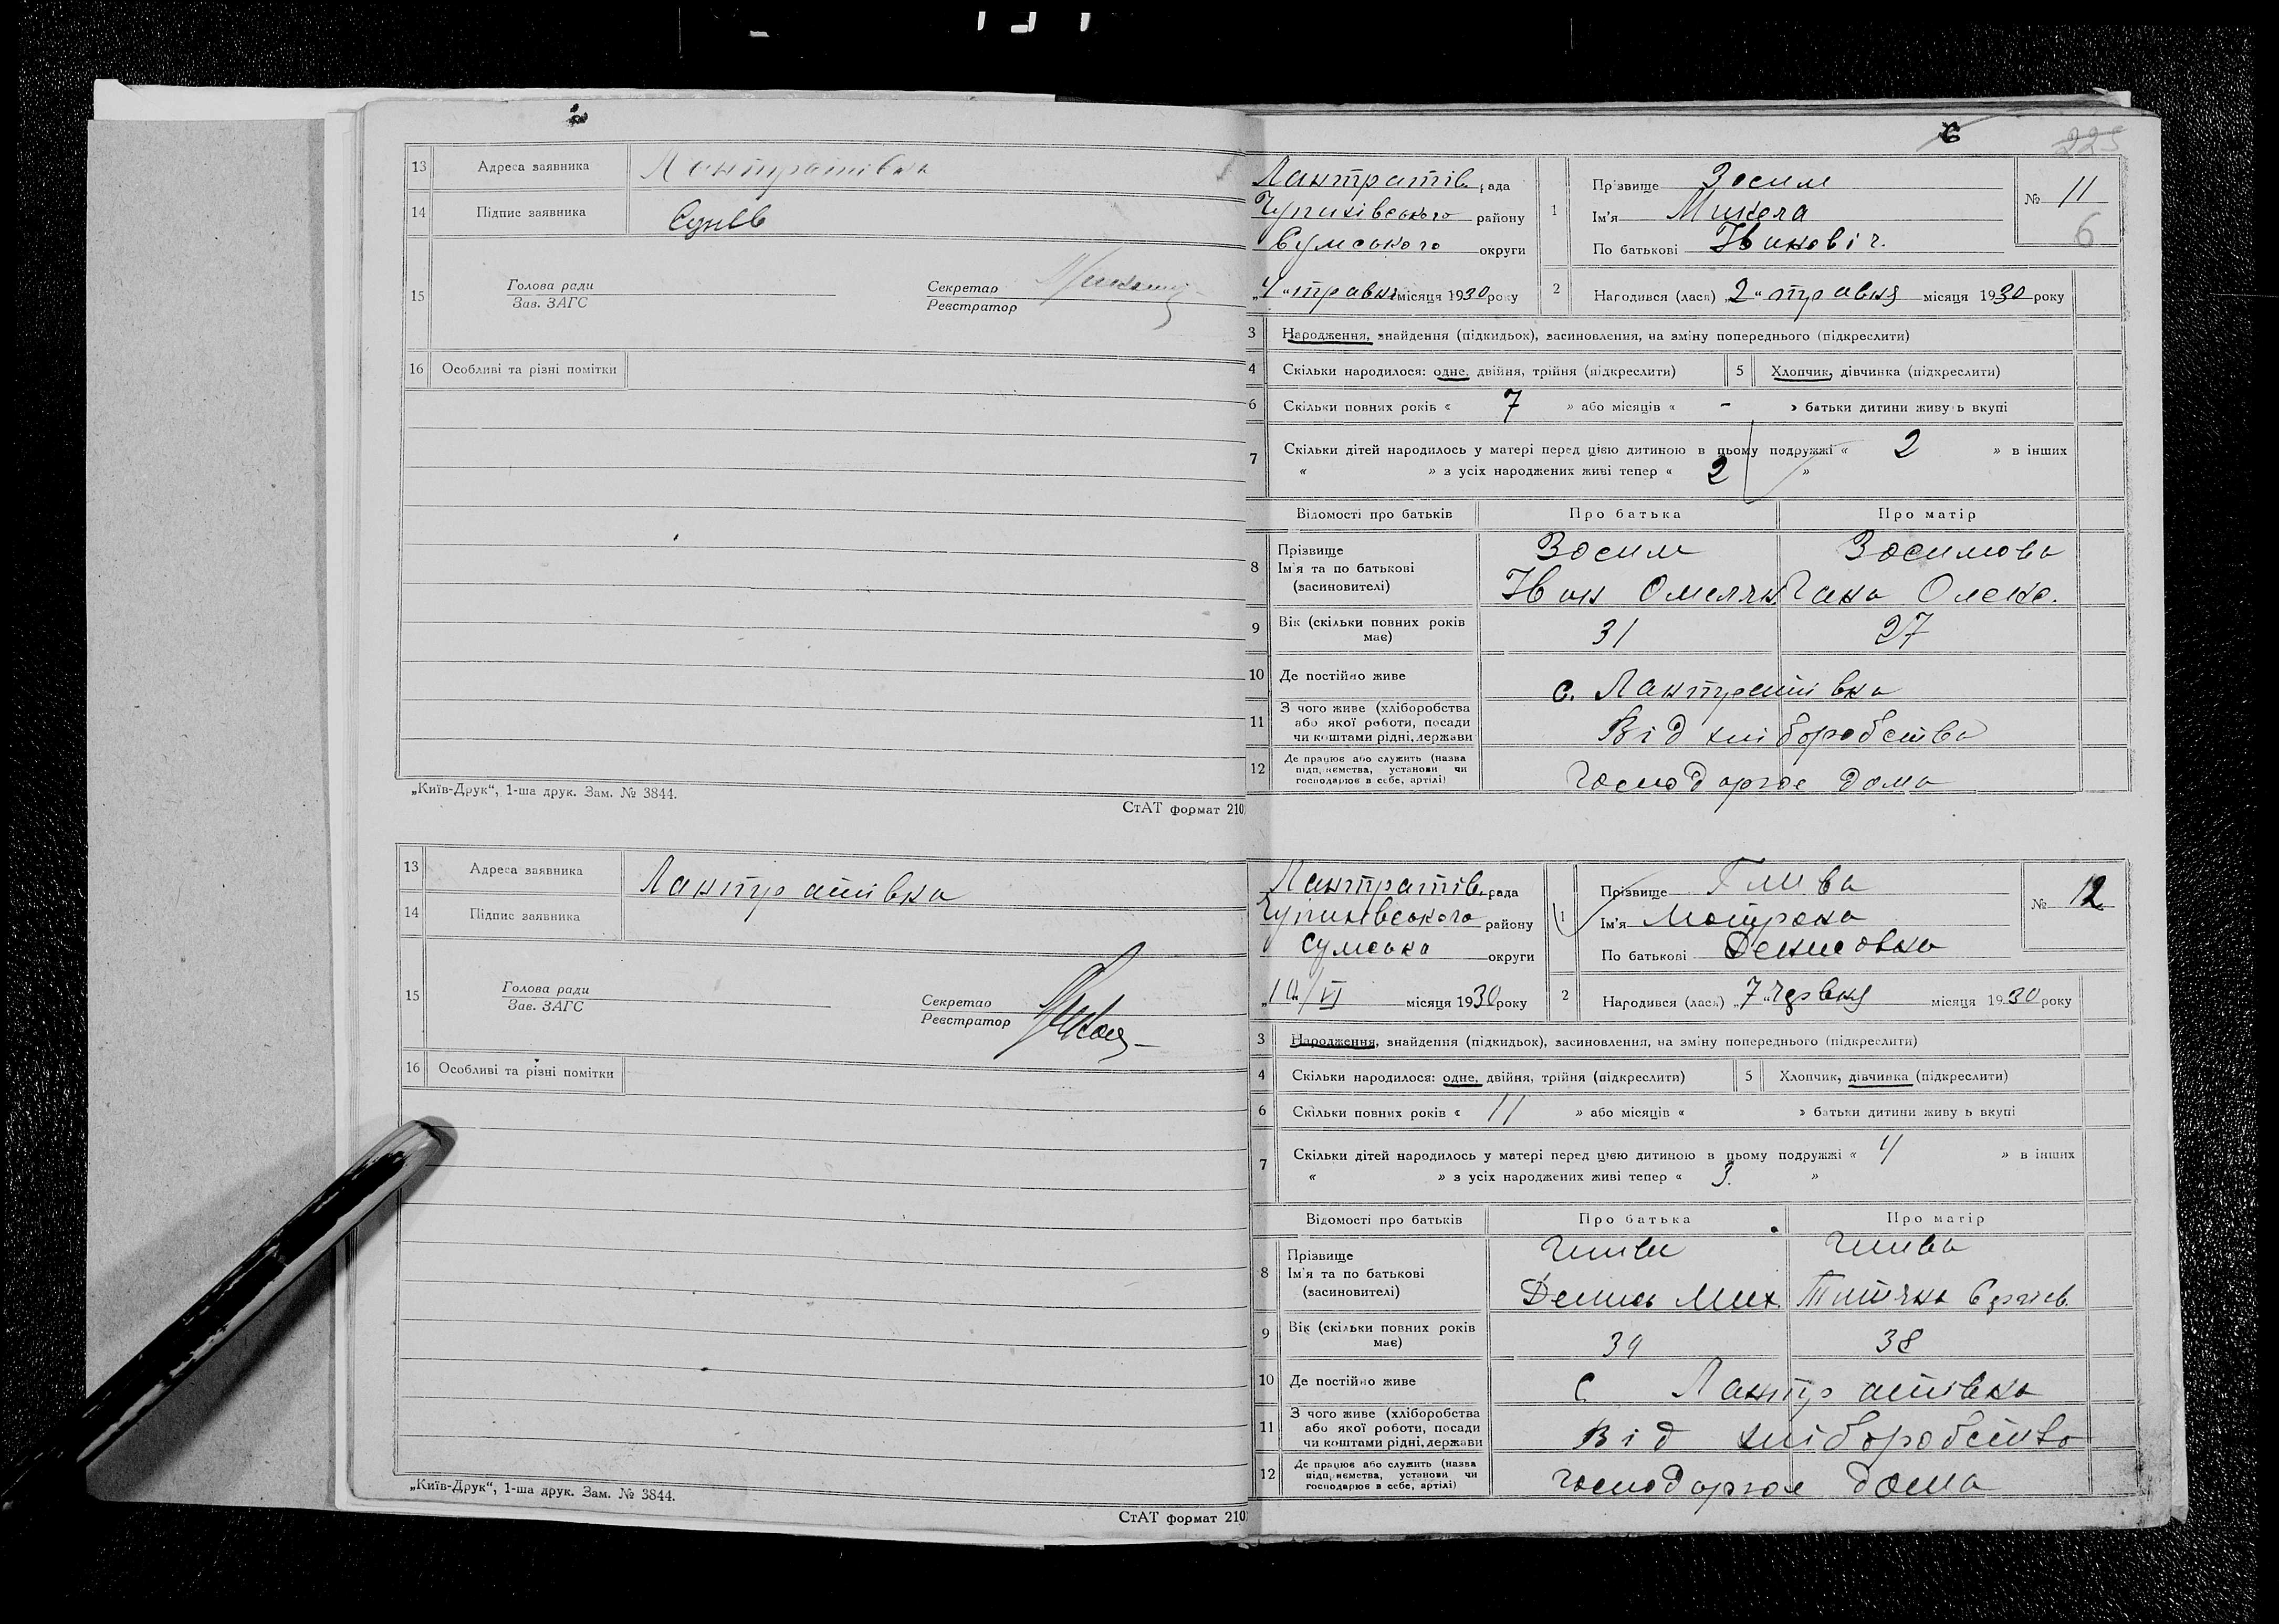 13 Адреса заявника Лантратівка
14 Підпис заявника
15 Голова ради
Зав. ЗАГС
Секретар
Реєстратор
16 Особливі та різні помітки
„Київ-Друк“, 1-ша друк. Зам. № 3844.
СтАТ формат 210
6 225
Лантратів. рада
Чупахівського району
Сумського округи
„4“ травня місяця 1930 року
1 Прізвище Зосим
Ім'я Микола
По батькові Іванович.
№ 11
6
2 Народився (лася) „2“ травня місяця 1930 року
3 Народження, знайдення (підкидьок), засиновлення, на зміну попереднього (підкреслити)
4 Скільки народилося: одне, двійня, трійня (підкреслити) 5 Хлопчик, дівчинка (підкреслити)
6 Скільки повних років « 7 » або місяців « - » батьки дитини живуть вкупі
7 Скільки дітей народилось у матері перед цією дитиною в цьому подружжі « 2 » в інших
« » з усіх народжених живі тепер « 2 »
Відомості про батьків Про батька Про матір
8 Прізвище Зосим Зосимова
Ім'я та по батькові
(засиновителі) Іван Омелян. Гана Олекс.
9 Вік (скільки повних років
має) 31 27
10 Де постійно живе с. Лантратівка
11 З чого живе (хліборобства
або якої роботи, посади
чи коштами рідні, держави Від хліборобства
12 Де працює або служить (назва
підприємства, установи чи
господарює в себе, артілі) господарює дома
13 Адреса заявника Лантратівка
14 Підпис заявника
15 Голова ради
Зав. ЗАГС
Секретар
Реєстратор
16 Особливі та різні помітки
„Київ-Друк“, 1-ша друк. Зам. № 3844.
СтАТ формат 210
Лантратів. рада
Чупахівського району
Сумська округи
„10“/VI місяця 1930 року
1 Прізвище Глива
Ім'я Мотрона
По батькові Денисовна
№ 12
2 Народився (лася) „7“ червня місяця 1930 року
3 Народження, знайдення (підкидьок), засиновлення, на зміну попереднього (підкреслити)
4 Скільки народилося: одне, двійня, трійня (підкреслити) 5 Хлопчик, дівчинка (підкреслити)
6 Скільки повних років « 11 » або місяців « » батьки дитини живуть вкупі
7 Скільки дітей народилось у матері перед цією дитиною в цьому подружжі « 4 » в інших
« » з усіх народжених живі тепер « 3. »
Відомості про батьків Про батька Про матір
8 Прізвище Глива Глива
Ім'я та по батькові
(засиновителі) Денис Мих. Титяна
9 Вік (скільки повних років
має) 39 38
10 Де постійно живе С. Лантратівка
11 З чого живе (хліборобства
або якої роботи, посади
чи коштами рідні, держави Від хліборобство
12 Де працює або служить (назва
підприємства, установи чи
господарює в себе, артілі) господарює дома